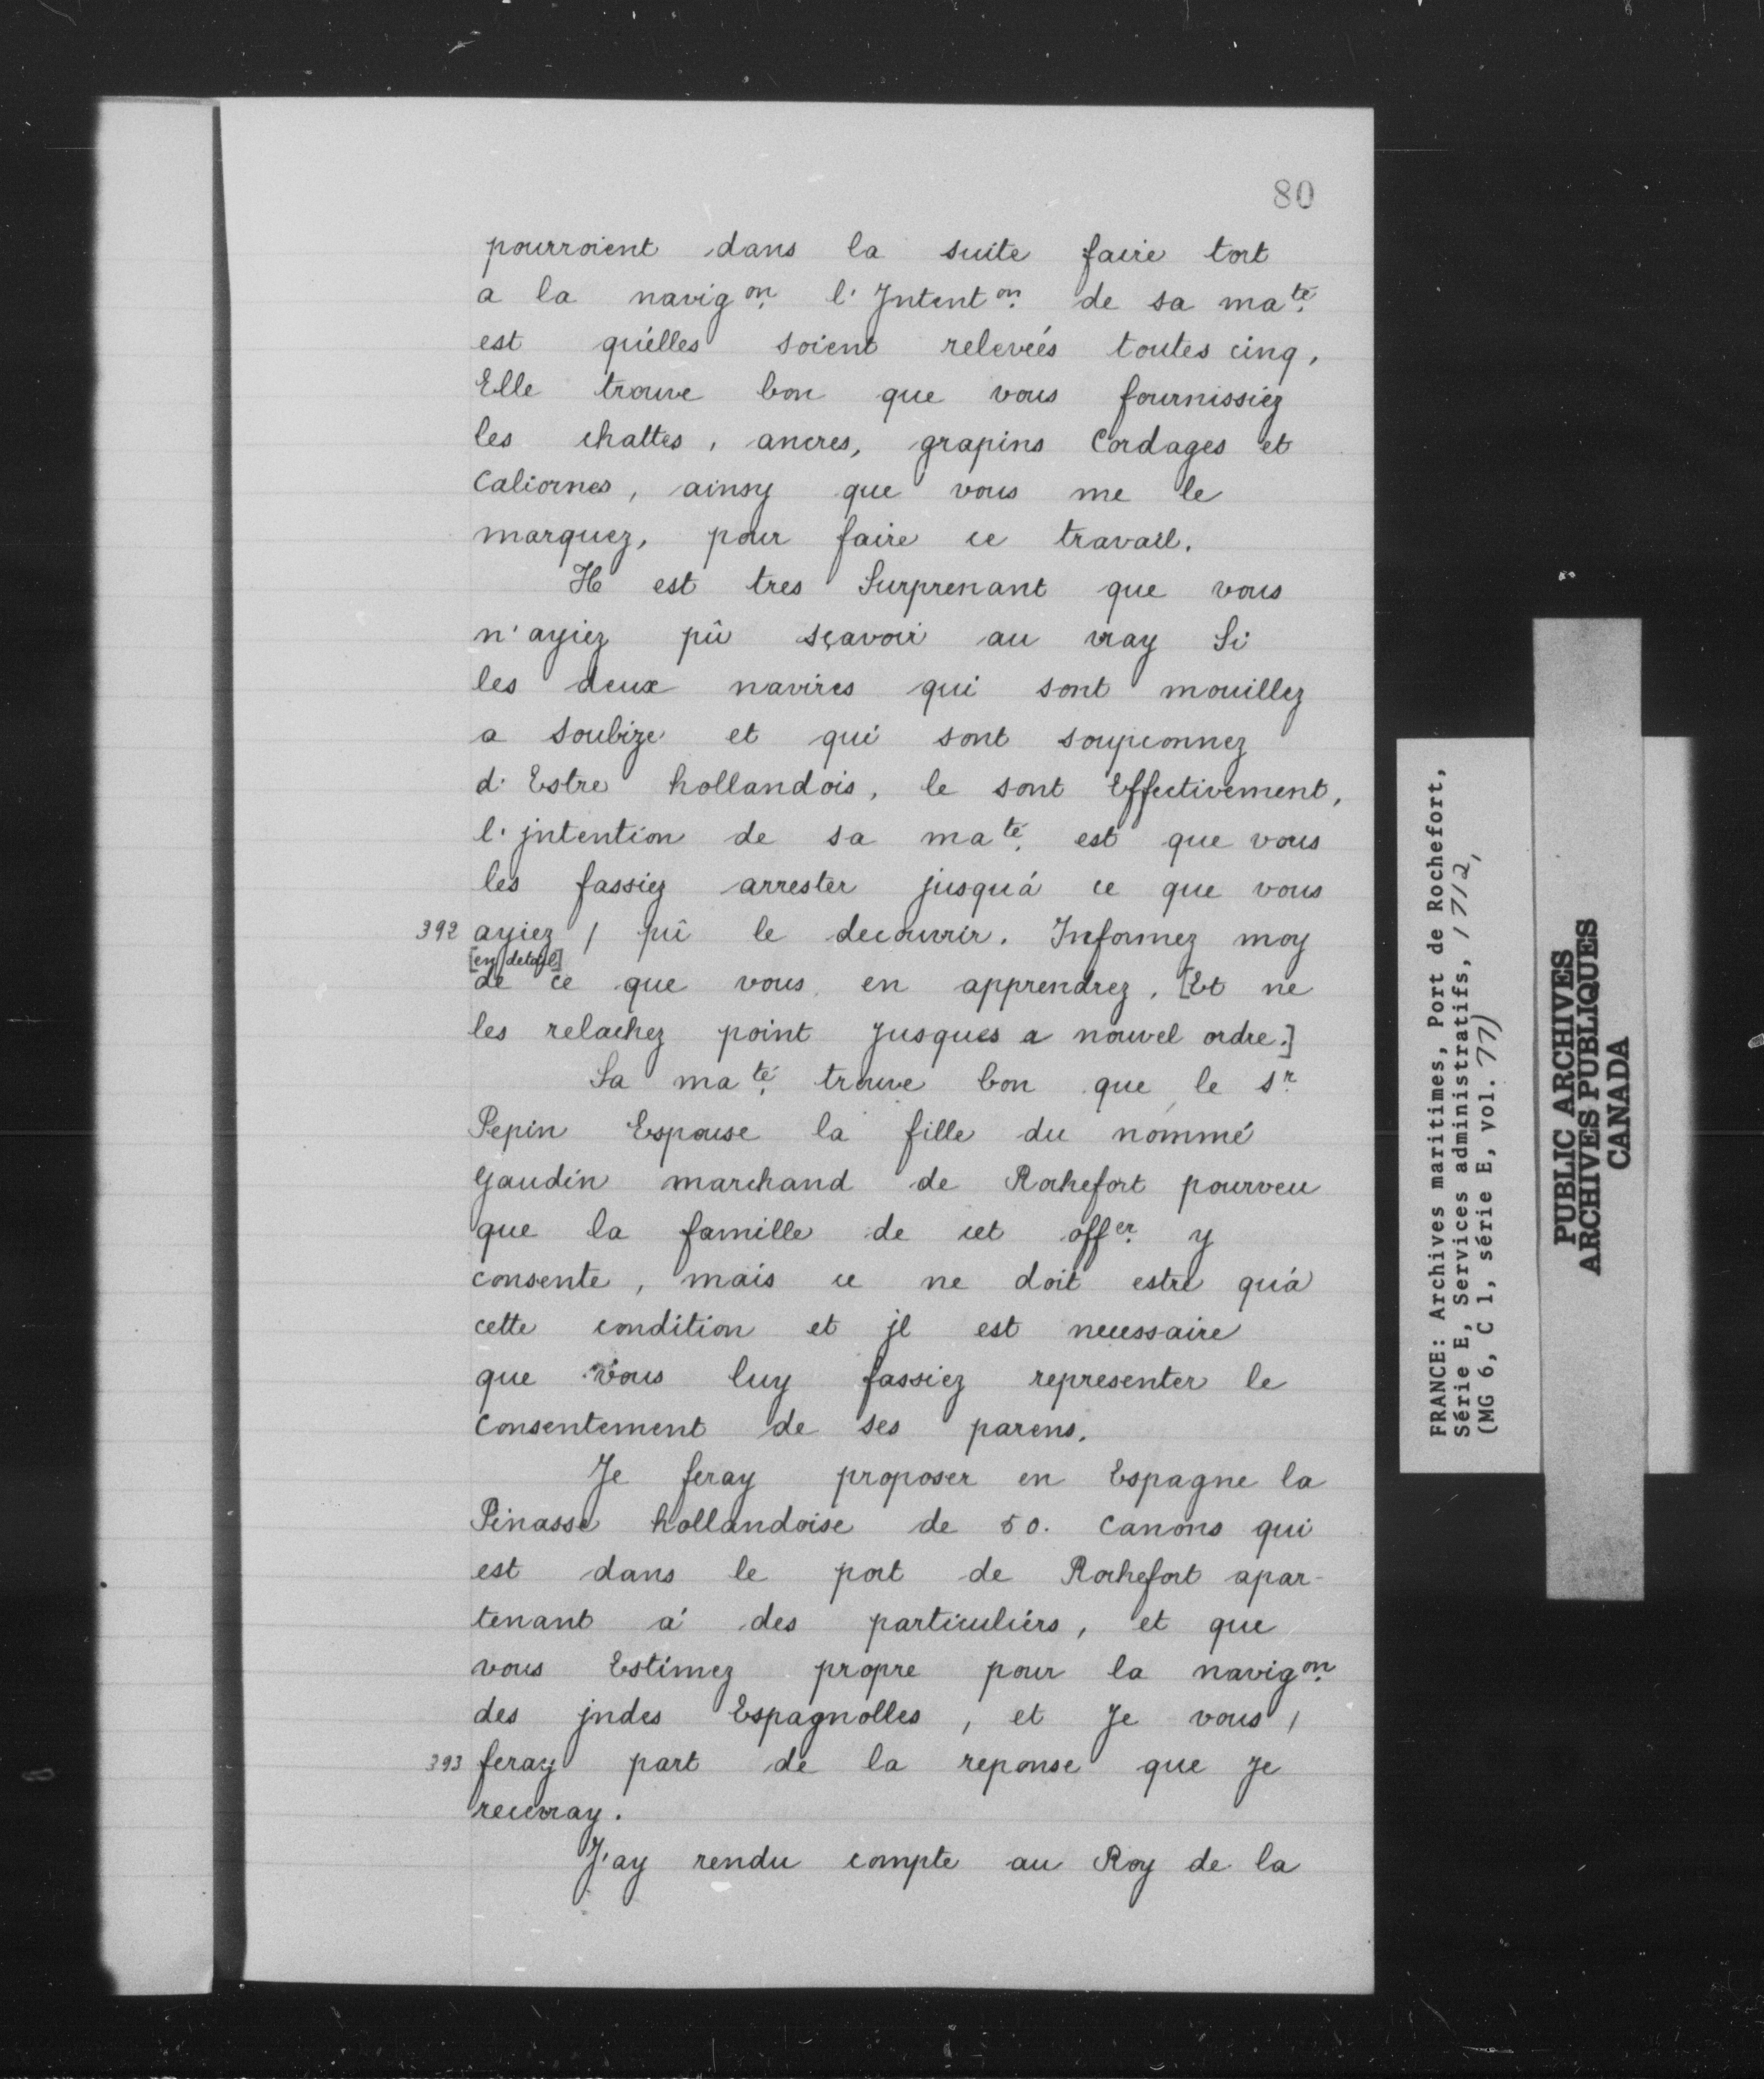 80
pourroient dans la suite faire tort
a la navig.on l'Jntent.on de sa ma.té
est qu'elles soient relevées toutes cinq,
Elle trouve bon que vous fournissiez
les chattes, ancres, grapins Cordages et
Caliornes, ainsy que vous me le
marquez, pour faire ce travail.
Il est tres Surprenant que vous
n'ayiez pû sçavoir au vray Si
les deux navires qui sont mouillez
a soubize et qui sont soupconnez
d'Estre hollandois, le sont Effectivement,
l'jntention de sa ma.té est que vous
les fassiez arrester jusqu'á ce que vous
392 ayiez / pû le decouvrir. Informez moy
[en detail]
de ce que vous en apprendrez. [Et ne
les relachez point Jusques a nouvel ordre.]
Sa ma.té trouve bon que le s.r
Pepin Espouse la fille du nommé
Gaudin marchand de Rochefort pourveu
que la famille de cet off.er y
consente, mais ce ne doit estre qu'á
cette condition et jl est necessaire
que vous luy fassiez representer le
Consentement de ses parens.
Je feray proposer en Espagne la
Pinasse hollandoise de 50. Canons qui
est dans le port de Rochefort apar-
tenant á des particuliers, et que
vous Estimez propre pour la navig.on
des jndes Espagnolles, et Je vous /
393 feray part de la reponse que Je
recevray.
J'ay rendu compte au Roy de la
FRANCE: Archives maritimes, Port de Rochefort,
Série E, Services administratifs, 1712,
(MG 6, C 1, série E, vol. 77)
PUBLIC ARCHIVES
ARCHIVES PUBLIQUES
CANADA